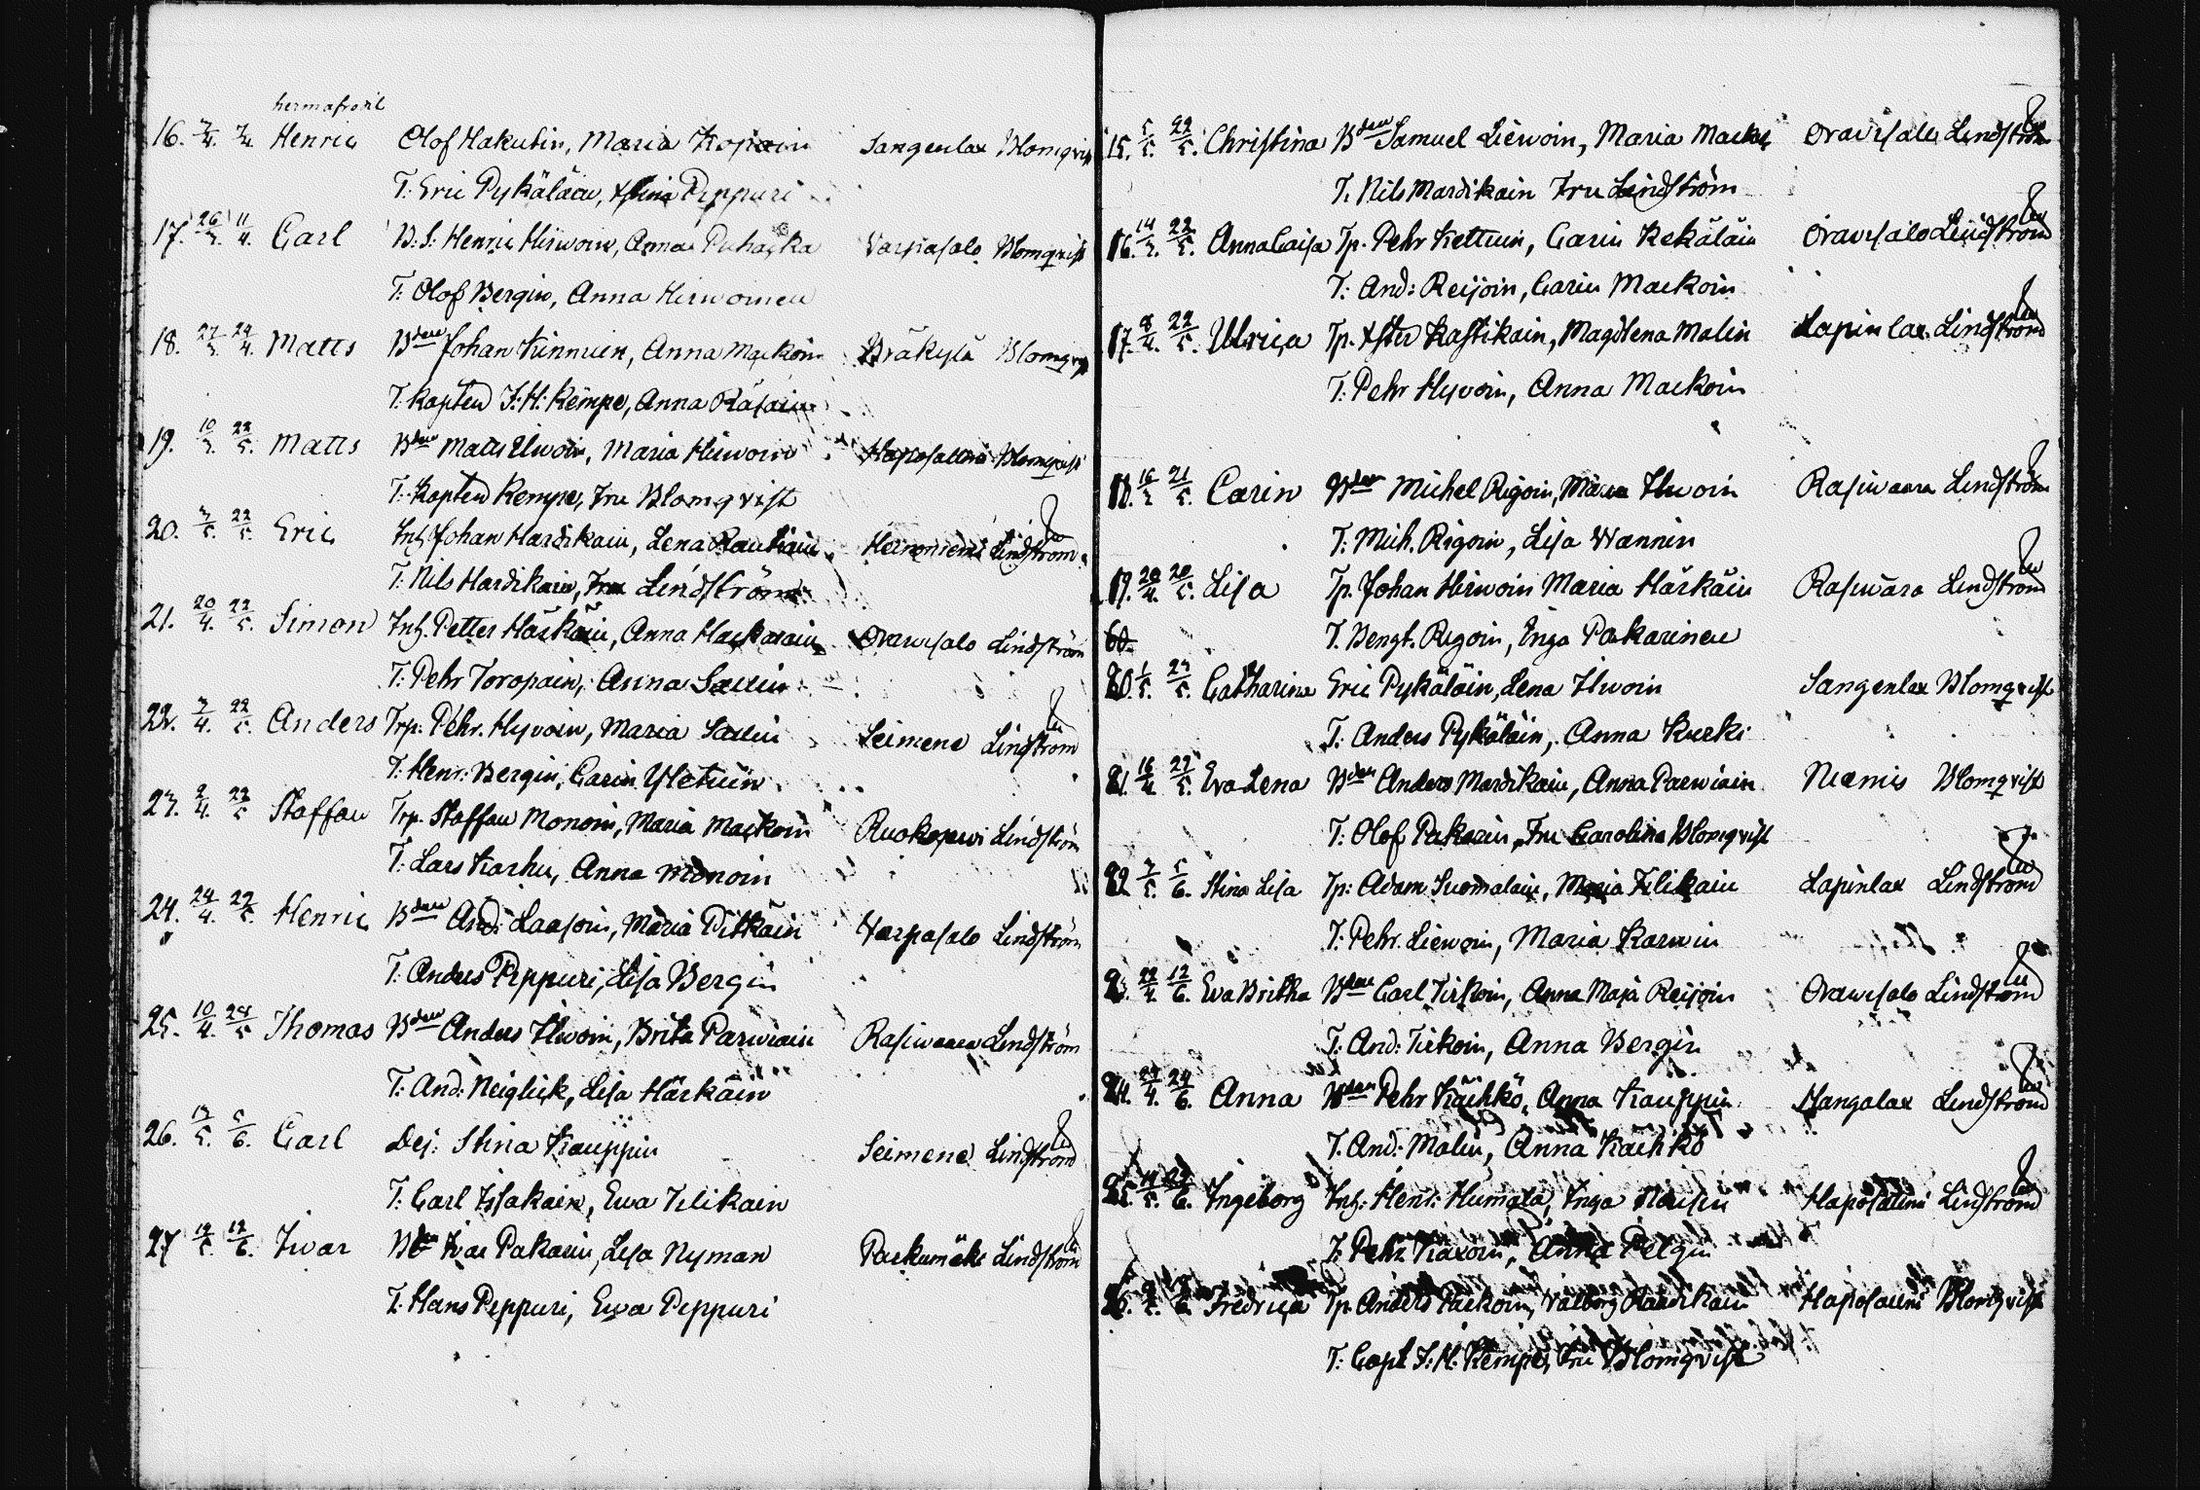 hermafrodit
16. 7/4. 7/4. Henric Olof Hakulin, Maria Kopain Sangenlax Blomqvist
T: Eric Pykäläin, Stina Peppuri
17. 26/3. 11/4. Carl B: S: Henric Hirwoin, Anna Puhacka Varpasalo Blomqvist
T: Olof Bergin, Anna Hirwoinen
18. 27/3. 24/4. Matts Bden Johan Kinnuin, Anna Mackoin Bräkylä Blomqvist
T. Kapten J: H: Kempe, Anna Räsäin
19. 10/3. 22/5. Matts Bden Matts Ilwoin, Maria Hirwoin Haposalmi Blomqvist
T: Kapten Kempe, Fru Blomqvist
20. 7/5. 22/5. Eric Inh. Johan Hardikain, Lena Rautiain Heinoniemi Lindström
T: Nils Hardikain, Fru Lindström
21. 20/4. 22/5. Simon Inh. Petter Härkäin, Anna Hackarain Orawisalo Lindström
T: Pehr Toropain, Anna
22. 7/4. 22/5. Anders Trp: Pehr. Hyvoin, Maria Seimene Lindström
T: Henr: Bergin, Carin
23. 2/4. 22/5 Staffan Trp. Staffan Monoin, Maria Mackoin Ruokojerwi Lindström
T: Lars Karhu, Anna Monoin
24. 24/4. 22/5. Henric Bden And: Laasoin, Maria Pitkäin Varpasalo Lindström
T: Anders Peppuri, Lisa Bergin
25. 10/4. 28/5 Thomas Bden Anders Ilwoin, Brita Parwiain Rasiwaara Lindström
T: And: Neiglick, Lisa Härkäin
26. 13/5. 5/6. Carl Dej: Stina Kauppin Seimene Lindström
T: Carl Issakain, Ewa Tilikain
27 12/5. 12/6. Iwar Bden Iwar Pakarin, Lisa Nyman Packamäki Lindström
T. Hans Peppuri, Ewa Peppuri
15. 5/5. 22/5. Christina Bden Samuel Liewoin, Maria Orawisalo Lindström
T. Nils Mardikain Fru Lindström
16. 14/3. 22/5. Anna Caisa Tp. Pehr Kettuin, Carin Kekäläin Orawisalo Lindström
T: And: Reijoin, Carin Mackoin
17. 8/4. 22/5. Ulrica Tp. Kastikain, Magdlena Malin Lapinlax Lindström
T: Pehr Hyvoin, Anna Mackoin
18. 16/3 21/5. Carin Bden Michel Rigoin, Maria Ilwoin Rasiwaara Lindström
T: Mich. Rigoin, Lisa Wannin
19. 20/4. 20/5. Lisa Tp. Johan Hirwoin Maria Härkäin Rasiwara Lindström
T. Bengt. Rigoin, Inga Pakarinen
20. 1/5. 27/5. Catharina Eric Pykäläin, Lena Ilwoin Sangenlax Blomqvist
T: Anders Pykäläin, Anna Kurki
21. 16/4 22/5. Eva Lena Bden Anders Mardikain, Anna Parwiain Niemis Blomqvist
T: Olof Pakarin, Fru Carolina Blomqvist
22 7/5 5/6. Stina Lisa Tp: Adam Suomalain, Maria Tilikain Lapinlax Lindström
T: Pehr Liewoin, Maria Karwin
23. 22/4. 12/6. Eva Britha Bden Carl Tirkoin, Anna Maja Reijoin Orawisalo Lindström
T: And: Tirkoin, Anna Bergin
24. 27/4. 24/6. Anna Bden Pehr Käihkö, Anna Kauppin Mangalax Lindström
T. And: Malin, Anna Käihkö
25. Ingeborg Inh: Henr: Humala, Inga Haposalmi Lindström
T. Pehr Anna
26. Fredrica Tp. Anders Valborg Hardikain Haposalmi Blomqvist
T: Capt J: H: Kempe, Fru Blomqvist